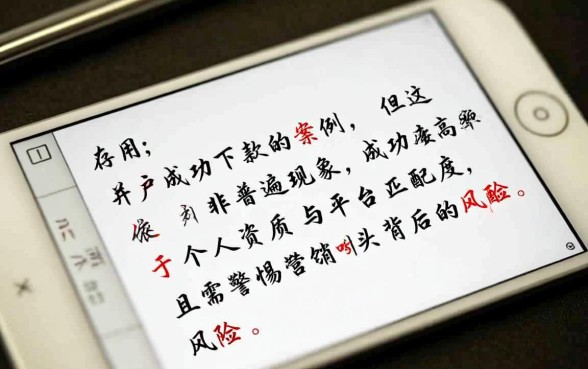 存用；
并户成功下款的案例，但这
依 非普遍现象，成功度高
于个人资质与平台匹配度，
且需警惕营销 头背后的风险。
风险。